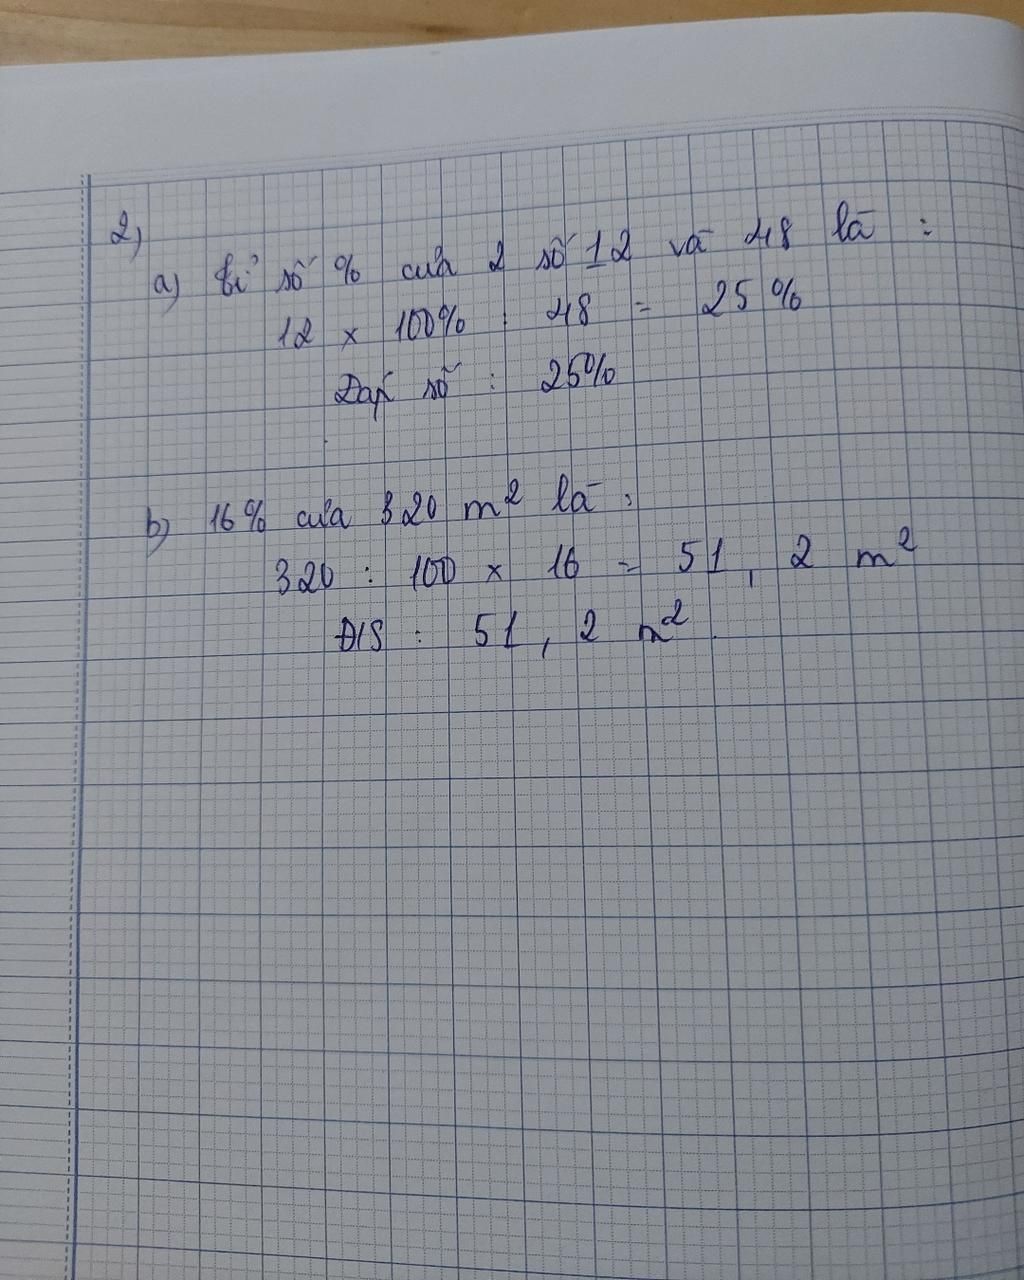 2)
a) tỉ số % của 2 số 12 và 48 là :
12 x 100% : 48 = 25 %
Đáp số : 25%
b) 16% của 320 m² là :
320 : 100 x 16 = 51, 2 m²
Đ/S : 51, 2 m²